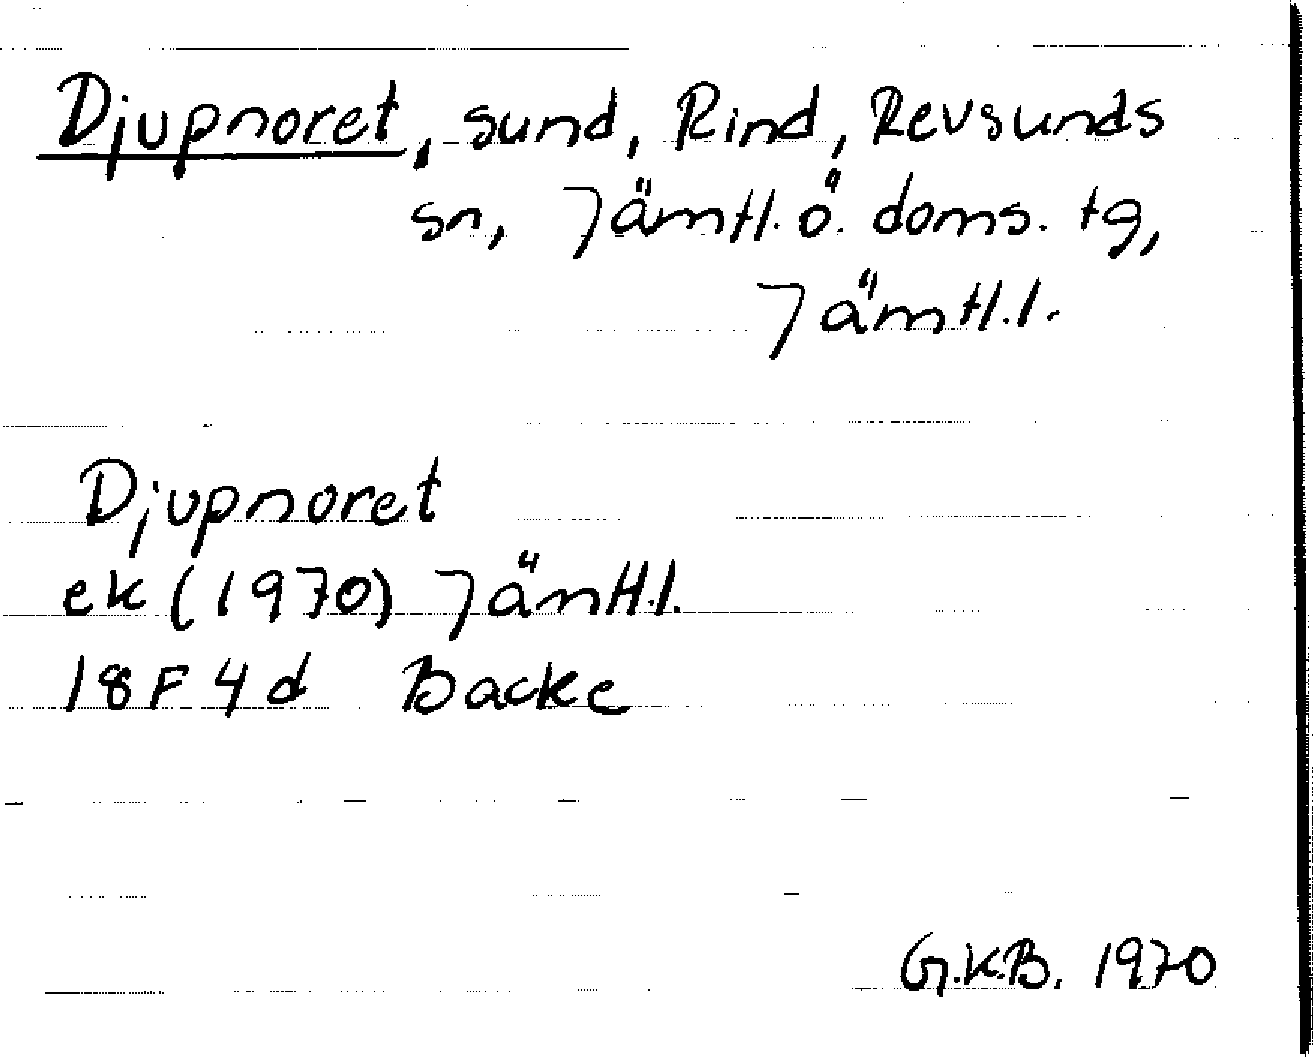 Djupnoret, sund, Rind, Revsunds
sn, Jämtl. ö. doms. tg,
Jämtl. l.
Djupnoret
ek (1970) Jämtl. l.
18F 4d Backe
G.K.B. 1970